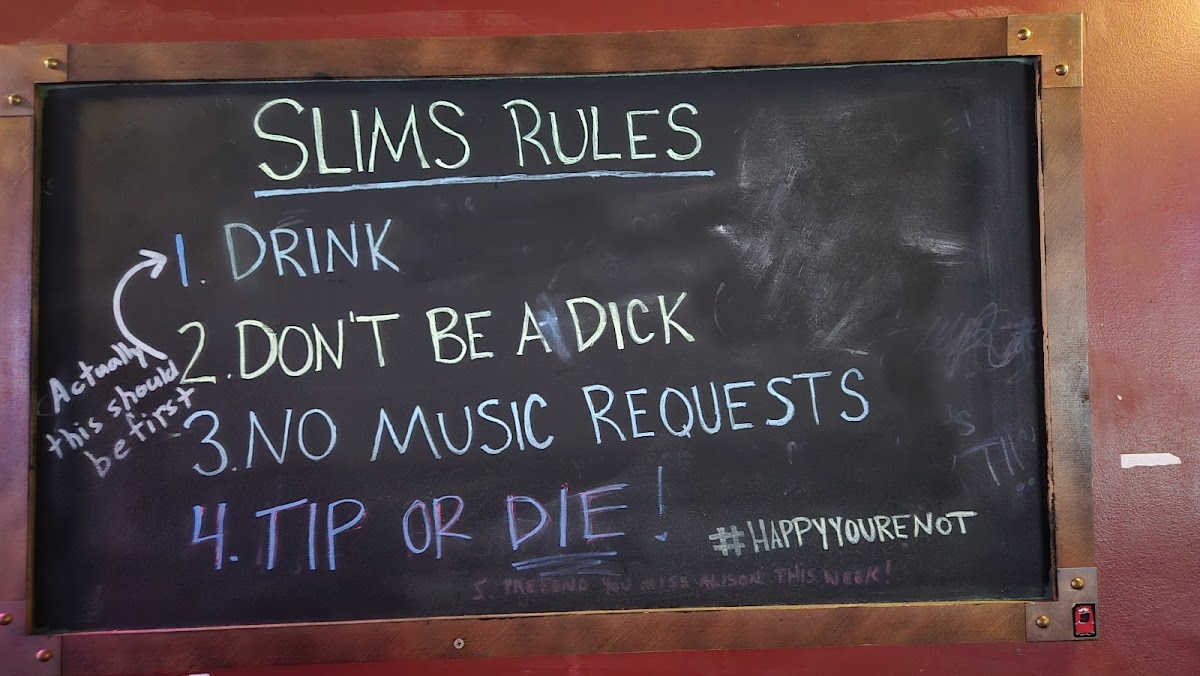 SLIMS RULES
1. DRINK
2. DON'T BE A DICK
Actually
this should
be first
3. NO MUSIC REQUESTS
4. TIP OR DIE!
#HAPPYYOURENOT
5. PRETEND YOU MISS ALISON THIS WEEK!